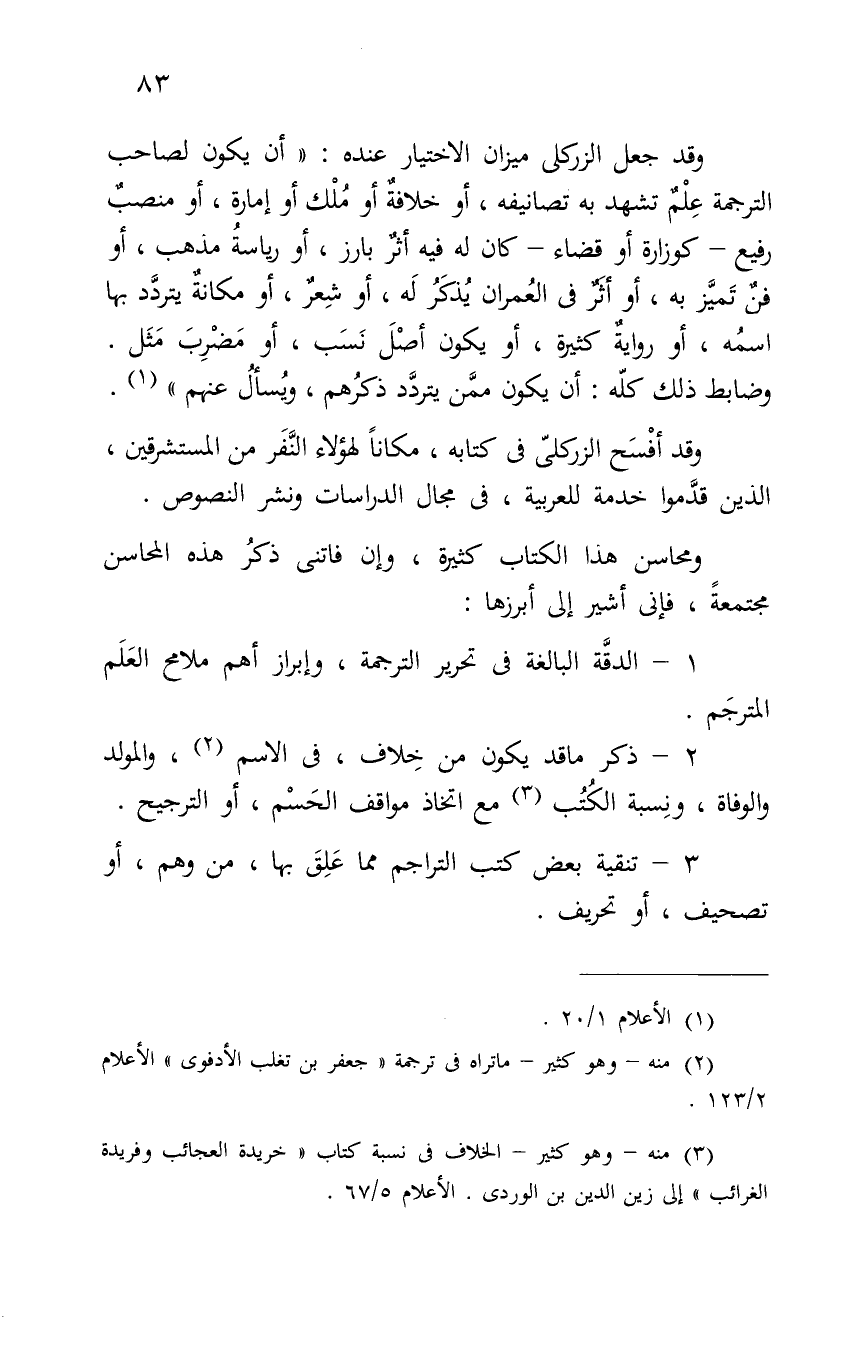 ٨٣
وقد جعل الزركلى ميزان الاختيار عنده : « أن يكون لصاحب
الترجمة عِلْمٌ تشهد به تصانيفه ، أو خلافةٌ أو مُلْك أو إمارة ، أو منصبٌ
رفيع – كوزارة أو قضاء – كان له فيه أثرٌ بارز ، أو رياسةُ مذهب ، أو
فنٌ تَميَّز به ، أو أثَرٌ فى العُمران يُذكَرُ لَه ، أو شِعرٌ ، أو مكانةٌ يتردَّد بها
اسمُه ، أو روايةٌ كثيرة ، أو يكون أصْلَ نَسَب ، أو مَضْرِبَ مَثَل .
وضابط ذلك كلّه : أن يكون ممَّن يتردَّد ذكرُهم ، ويُسألُ عنهم » (١) .
وقد أفْسَح الزركلىّ فى كتابه ، مكاناً لهؤلاء النَّفَر من المستشرقين ،
الذين قدَّموا خدمة للعربية ، فى مجال الدراسات ونشر النصوص .
ومحاسن هذا الكتاب كثيرة ، وإن فاتنى ذكرُ هذه المحاسن
مجتمعةً ، فإنى أشير إلى أبرزها :
١ – الدقَّة البالغة فى تحرير الترجمة ، وإبراز أهم ملامح العَلَم
المترجَم .
٢ – ذكر ماقد يكون من خِلاف ، فى الاسم (٢) ، والمولد
والوفاة ، ونِسبة الكُتُب (٣) مع اتخاذ مواقف الحَسْم ، أو الترجيح .
٣ – تنقية بعض كتب التراجم مما عَلِقَ بها ، من وهم ، أو
تصحيف ، أو تحريف .
(١) الأعلام ٢٠/١ .
(٢) منه – وهو كثير – ماتراه فى ترجمة « جعفر بن تغلب الأدفوى » الأعلام
١٢٣/٢ .
(٣) منه – وهو كثير – الخلاف فى نسبة كتاب « خريدة العجائب وفريدة
الغرائب » إلى زين الدين بن الوردى . الأعلام ٦٧/٥ .